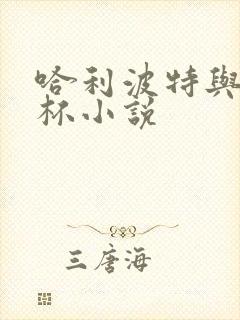 哈利波特與
杯小說
三唐海